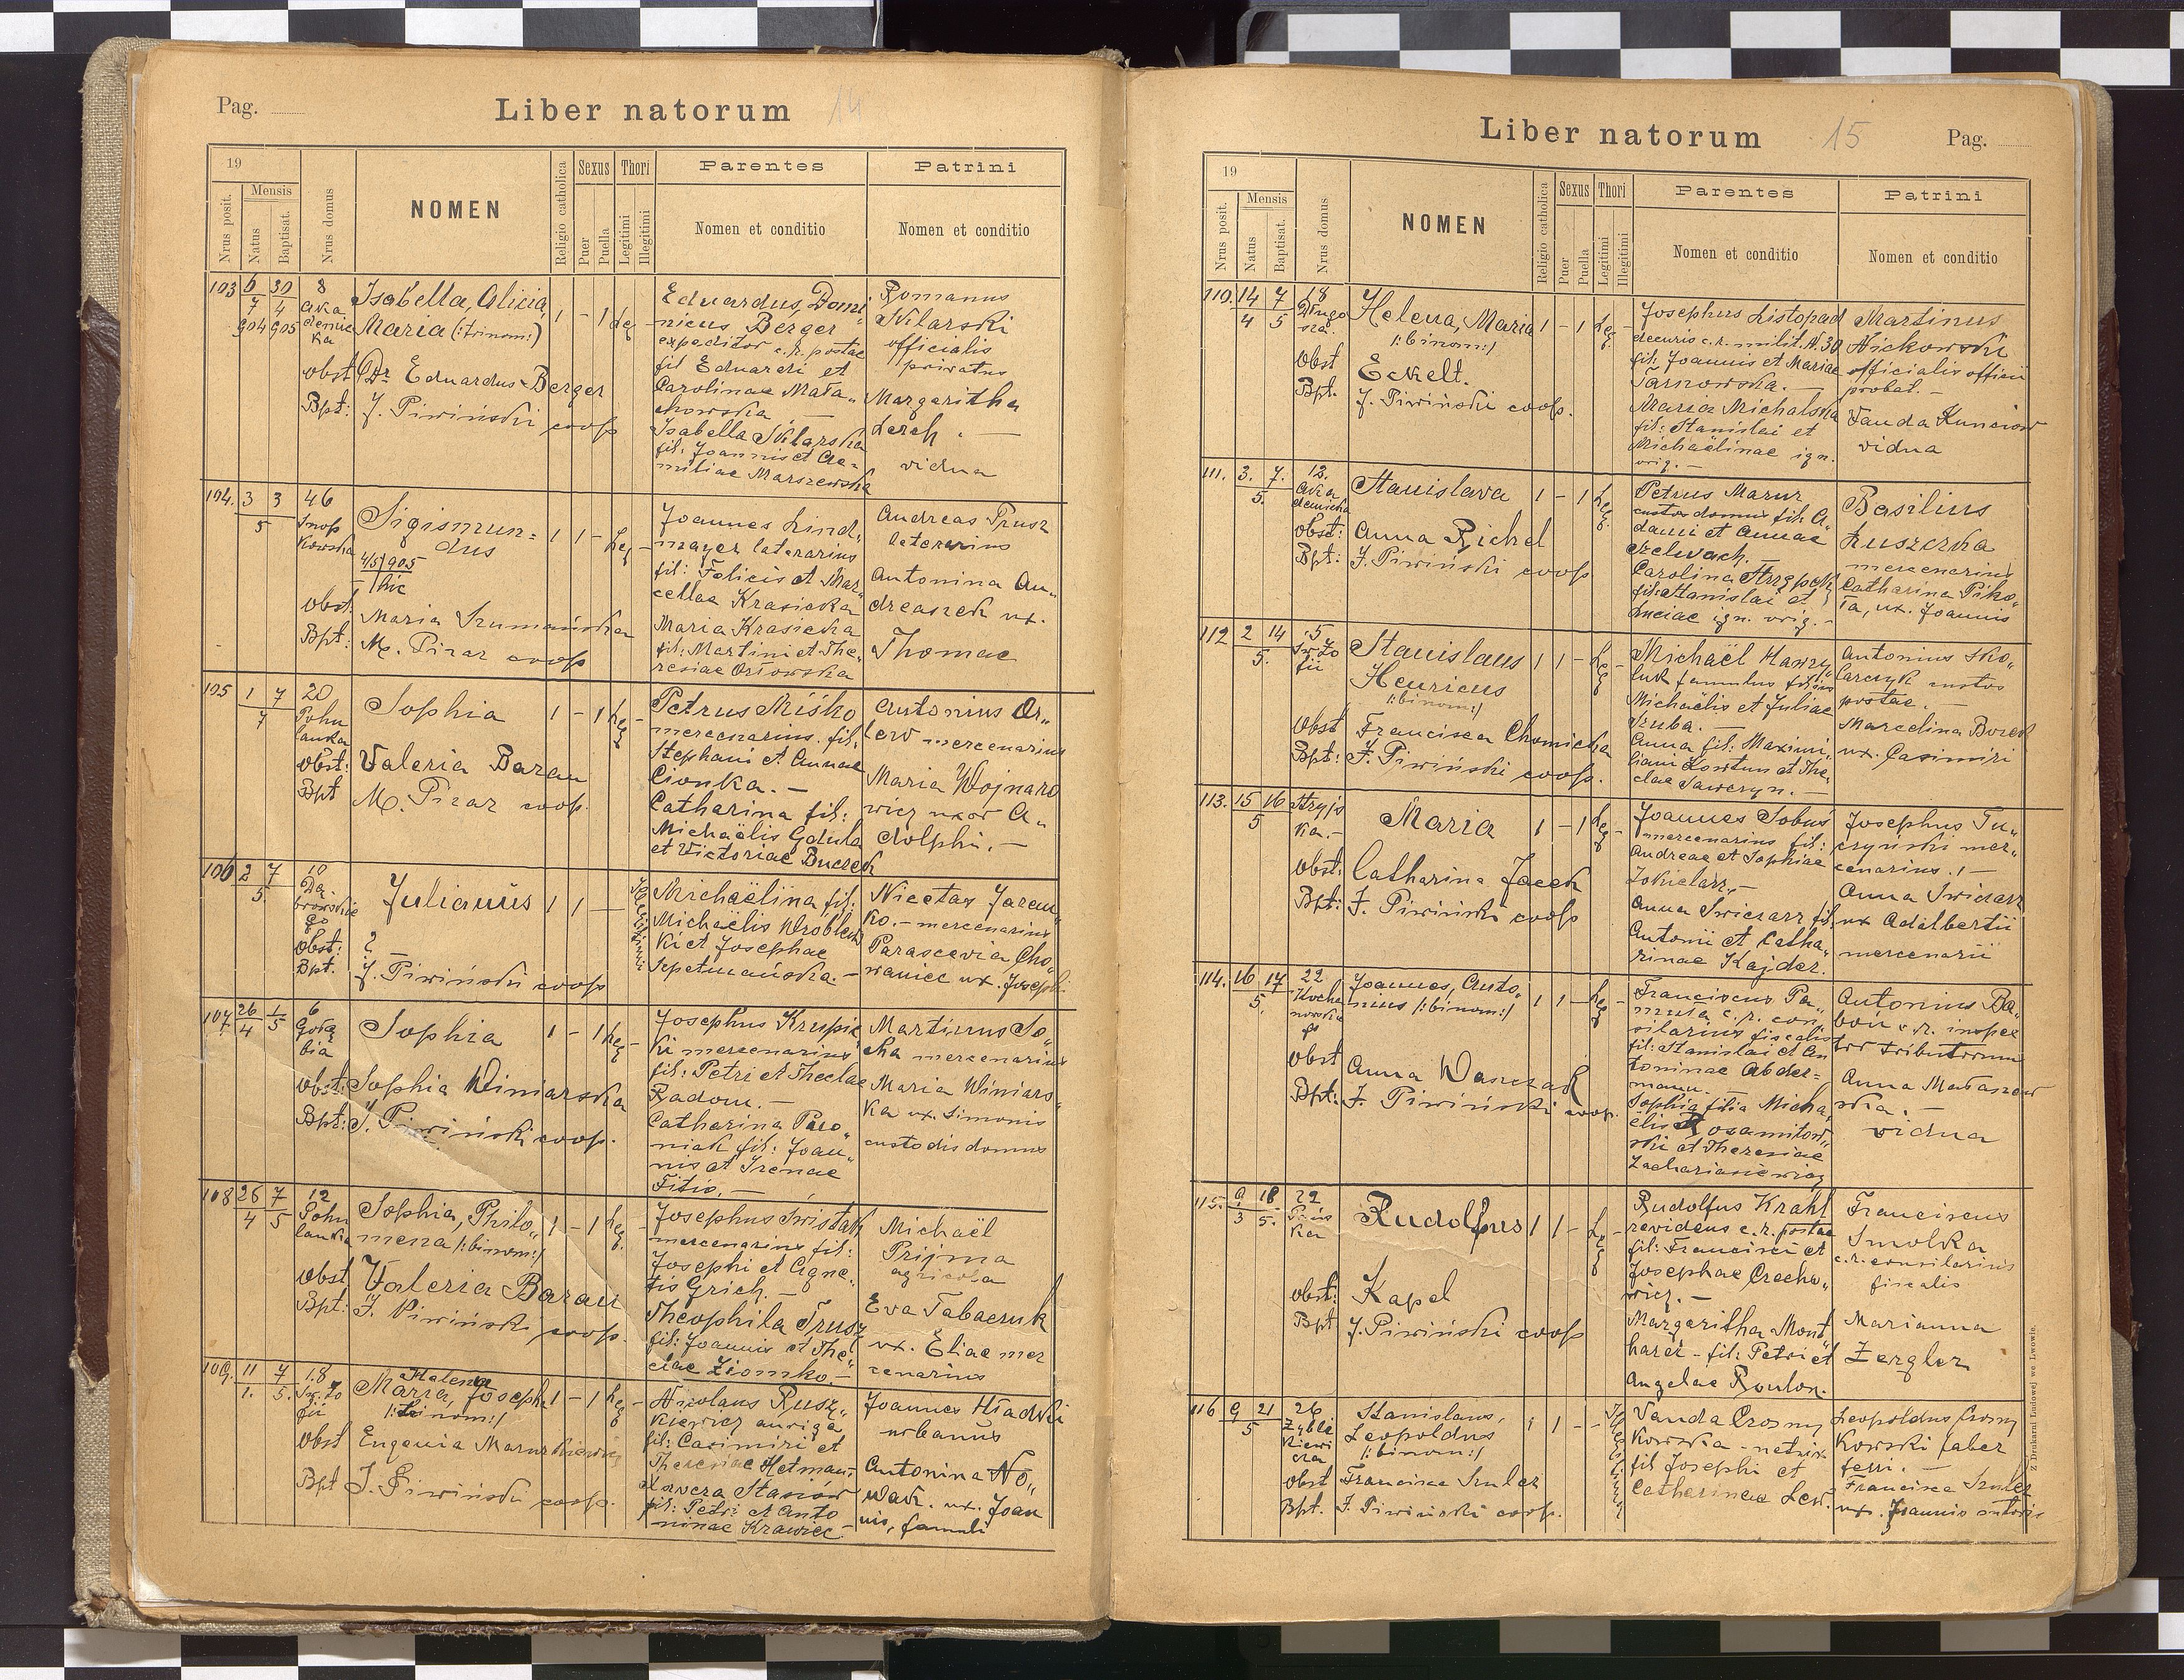 Pag.
Liber natorum 14
19
Mensis
Nrus posit.
Natus
Baptisat.
Nrus domus
NOMEN
Religio catholica
Sexus
Puer
Puella
Thori
Legitimi
Illegitimi
Parentes
Nomen et conditio
Patrini
Nomen et conditio
103 6/7 904 30/4 905
8
Aka
demic
ka
Isabella, Alicia,
Maria (:trinom:)
1 - 1 Leg
obst Dr Eduardus Berger
Bpt: J. Piwiński coop
Eduardus, Domi
nicus Berger
expeditor c. r. postae
fil Eduardi et
Carolinae Mała„
chowska —
Isabella Sklarska
fil: Joannis et Ae=
miliae Marszewska
Romanus
Sklarski
officialis
privatus
Margaritha
Lerch. —
vidua
104. 3 3
5
46
Snop
kowska
Sigismun=
dus
4/5/905
hic
1 1 - Leg -
obst: Maria Szumańska
Bpt: M. Pizar coop
Joannes Lind„
mayer laterarius
fil: Felicis et Mar„
cellae Krasicka
Maria Krasicka
fil: Martini et The„
resiae Orłowska
Andreas Prusz
laterarius
Antonina An„
dreaszek ux.
Thomae
105 1 7
7
20
Pohu
lanka
Sophia
1 - 1 Leg -
obst: Valeria Baran
Bpt M. Pizar coop.
Petrus Miśko
mercenarius. fil:
Stephani et Annae
Cionka. —
Catharina fil:
Michaëlis Gdula
et Victoriae Buczek
Antonius Or„
łow mercenarius
Maria Wojnaro
wicz uxor A„
dolphi. —
106 2 7
5
10
Dą
browskie
go
Julianus
1 1 —
Illegitimi
obst: ?
Bpt. J. Piwiński coop
Michaëlina fil:
Michaëlis Wroblews
ki et Josephae
Szpetmańska. —
Nicetas Jarem
ko. — mercenarius
Parascevia Cho„
waniec ux. Josephi
107 26/4 1/5
6
Gołę
bia
Sophia
1 - 1 Leg -
obst: Sophia Winiarska
Bpt: J. Piwiński coop.
Josephus Krupic
ki mercenarius
fil: Petri et Theclae
Radom. —
Catharina
niak fil: Joan„
nis et Irenae
Fitio. —
Martinus So„
cha mercenarius
Maria Winiars„
ka ux. Simonis
custodis domus
108 26 7
4 5
12
Pohu
lanka
Sophia, Philo„
mena /:binom:/
1 - 1 Leg. -
obst Valeria Baran
Bpt: J. Piwiński coop.
Josephus Swistak
mercenarius fil:
Josephi et Agne„
tis Grich. —
Theophila Trusz
fil: Joannis et The„
clae Ziomko. —
Michaël
Prijma
agricola
Eva Tabaczuk
ux. Eliae mer
cenarius
109. 11 7
1. 5.
18
Sw. Zo
fii
Helena
Maria, Joseph
1 - 1 Leg -
obst Eugenia Mazurkiewicz
Bpt J. Piwiński coop.
Nicolaus Rusz„
kiewicz auriga
fil: Casimiri et
Theresiae Hetman„
Xavera Stasiów
fil: Petri et Anto
ninae Krawiec. —
Joannes Hładki
urbanus
Antonina No„
wak. ux. Joan
nis, famuli
Liber natorum 15 Pag.
19
Mensis
Nrus posit.
Natus
Baptisat.
Nrus domus
NOMEN
Religio catholica
Sexus
Puer
Puella
Thori
Legitimi
Illegitimi
Parentes
Nomen et conditio
Patrini
Nomen et conditio
110. 14 7
4 5
18
Helena, Maria
/:binom:/
1 - 1 Leg. -
obst Eckelt.
Bpt. J. Piwiński coop.
Josephus Listopad
decuris c. r. milit. N. 30
fil: Joannis et Mariae
Tarnowska. —
Maria Michalska
fil: Stanislai et
Michaëlinae ign.
orig. —
Martinus
Nickowski
officialis officii
probat. —
Vanda Kunciow
vidua
111. 3. 7.
5.
12.
Aka
demicka
Stanislava
1 - 1 Leg. -
obst: Anna Richel
Bpt: J. Piwiński coop
Petrus Mazur
custos domus fil: A„
dami et Annae
Szelwach. —
Carolina Strzępek
fil: Stanislai et
Luciae ign. orig. —
Basilius
Łuszczka
mercenarius
Catharina Piko„
ta, ux. Joannis
112 2 14
5.
5
Sw. Zo
fii
Stanislaus
Henricus
/:binom:/
1 1 - Leg -
obst Francisca Chomicka
Bpt: J. Piwiński coop.
Michaël Hawry„
luk famulus filius
Michaëlis et Juliae
Szuba. —
Anna fil: Maximi„
liani Kowtun et The„
clae Sawczyn. —
Antonius Sko„
larczyk custos
postae. —
Marcelina Borek
ux. Casimiri
113. 15 16
5
Stryjs
ka. —
Maria
1 - 1 Leg -
obst: Catharina Jacek
Bpt: J. Piwiński coop
Joannes Sobus
mercenarius fil:
Andreae et Sophiae
Anna Swiesarz fil:
Antonii et Catha„
rinae Kajder.
Josephus Tu„
czyński mer„
cenarius. ! —
Anna Swiesarz
ux Adalbertii
mercenarii
114. 16 17
5.
22
Kocha
nowskie
go
Joannes, Anto„
nius /:binom:/
1 1 - Leg -
obst Anna Wanczak
Bpt: J. Piwiński coop.
Franciscus Pa„
c. r. con„
siliarius fiscalis
fil: Stanislai et An
toninae Abder=
mann. —
Sophia filia Micha„
elis Rosamitow„
ski et Theresiae
Zachariasiewicz
Antonius Ba„
boń c. r. inspec
tor tributorum
Anna Małaszew
ska. —
vidua
115. 9 18
3 5.
22
Rudolfus
1 1 - Leg -
obst: Kapel
Bpt J. Piwiński coop
Rudolfus Krahl
revidens c. r. postae
fil: Francisci et
Josephae Czechо„
wicz. —
Margaritha Mont
harét - fil: Petri et
Angelae Roulon.
Franciscus
Smolka
c. r. consiliarius
fiscalis
Marianna
Zergler
116 9 21
5
26
Zybli
kiewi
cza
Stanislaus,
Leopoldus
/:binom:/
1 1 - -
Illegitimi
obst Francisca Szuler
Bpt. J. Piwiński coop.
Vanda Crosny
kowska - netrix
fil Josephi et
Catharinae Lew.
Leopoldus Crosny
kowski faber
ferri. —
Francisca Szuler
ux. Joannis sutoris
Z Drukarni Ludowej we Lwowie.